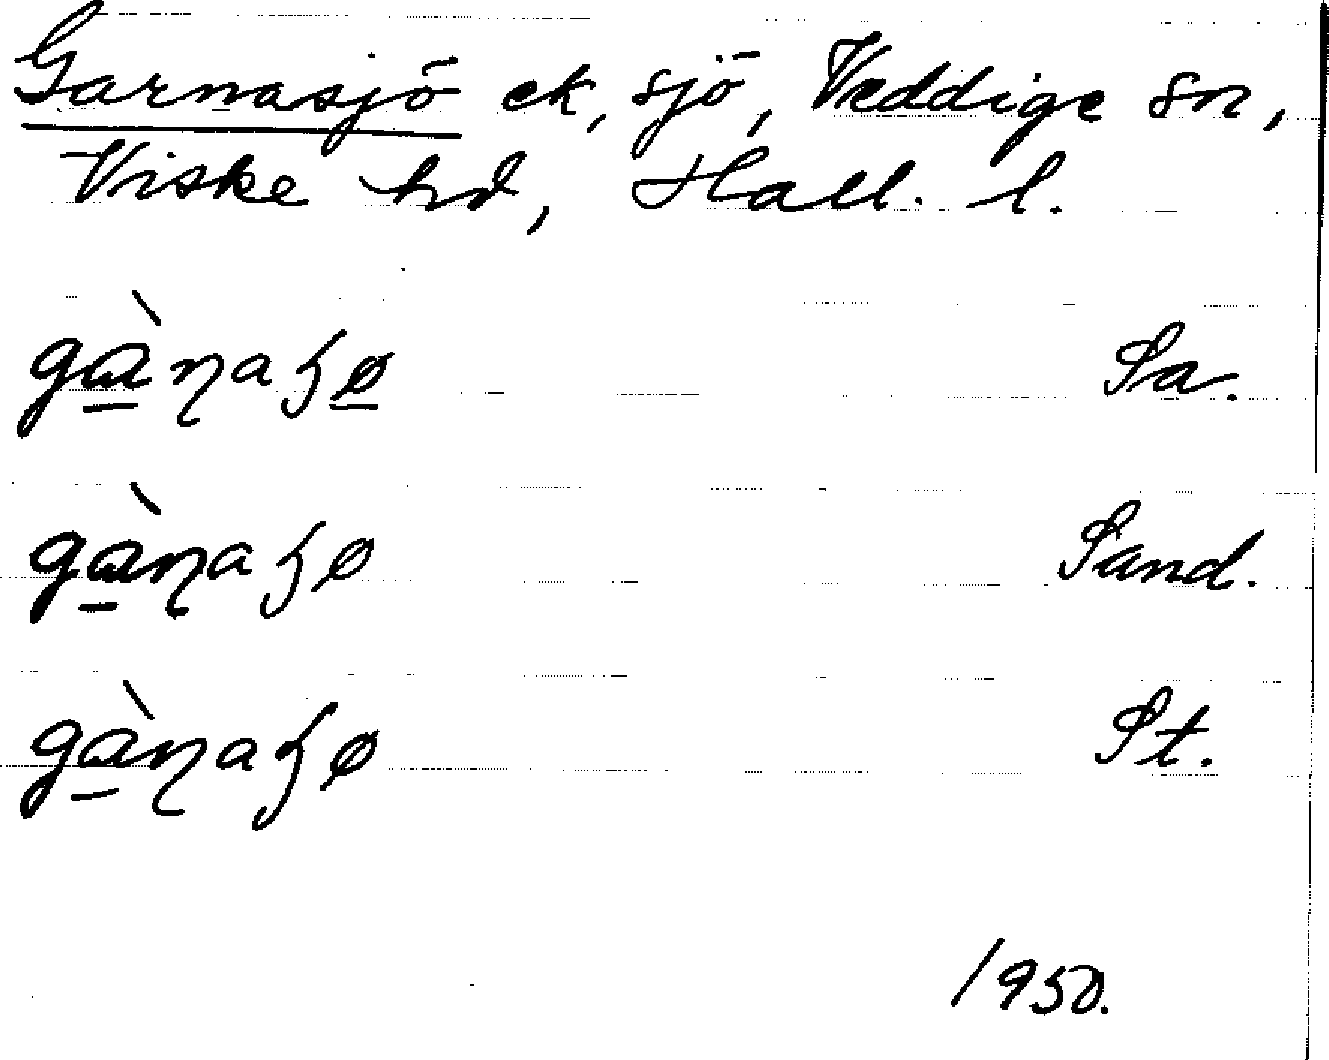 Garnasjö ek, sjö, Veddige sn,
Viske hd, Hall. l.
gɑ̠̀ɳaɧø̠ Sa.
gɑ̠̀ɳaɧø Sand.
gɑ̠̀ɳaɧø St.
1950.